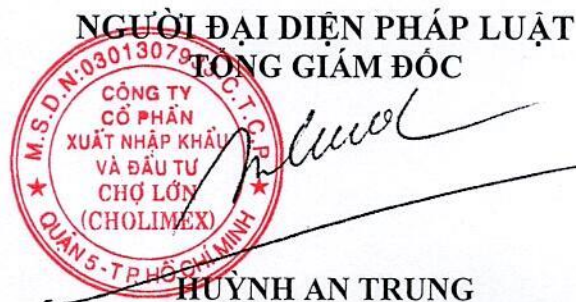 NGƯỜI ĐẠI DIỆN PHÁP LUẬT
TỔNG GIÁM ĐỐC
CÔNG TY
CỔ PHẦN
XUẤT NHẬP KHẨU
VÀ ĐẦU TƯ
CHỢ LỚN
(CHOLIMEX)
QUẬN 5 - T.P HỒ CHÍ MINH
HUỲNH AN TRUNG